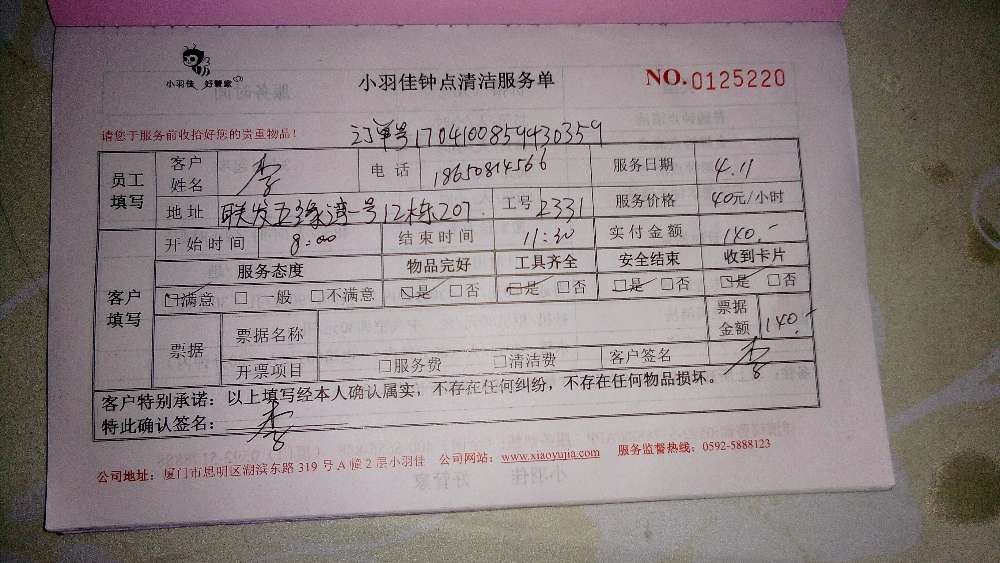 小羽佳 好管家
小羽佳钟点清洁服务单
NO.0125220
请您于服务前收拾好您的贵重物品!
订单号1704100859430359
员工填写 客户姓名 李 电话 18650814566 服务日期 4.11
地址 联发五缘湾一号12栋207 工号 2331 服务价格 40元/小时
客户填写 开始时间 8:00 结束时间 11:30 实付金额 140.-
服务态度 物品完好 工具齐全 安全结束 收到卡片
☑满意 □一般 □不满意 ☑是 □否 ☑是 □否 ☑是 □否 ☑是 □否
票据 票据名称 票据金额 140.-
开票项目 □服务费 □清洁费 客户签名 李
客户特别承诺:以上填写经本人确认属实,不存在任何纠纷,不存在任何物品损坏。
特此确认签名: 李
公司地址:厦门市思明区湖滨东路319号A幢2层小羽佳 公司网站:www.xiaoyujia.com 服务监督热线:0592-5888123